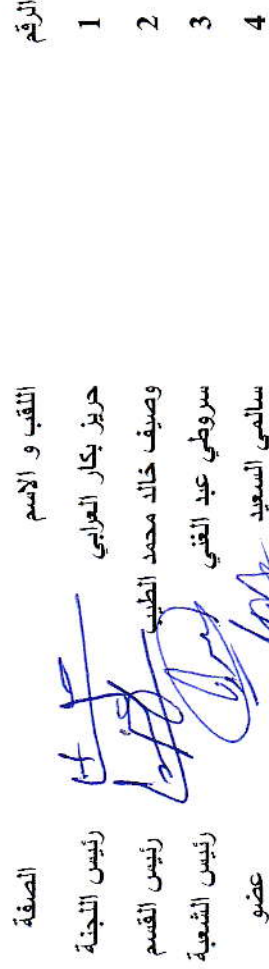 الرقم اللقب و الاسم الصفة
1 حريز بكار العرابي رئيس اللجنة
2 وصيف خالد محمد الطيب رئيس القسم
3 سروطي عبد الغني رئيس الشعبة
4 سالمي السعيد عضو